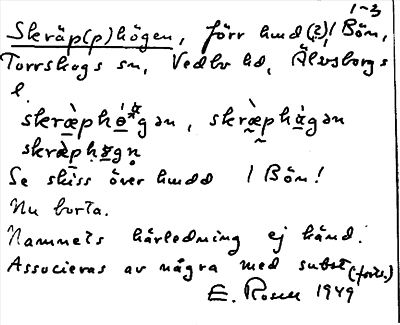 1-3
Skräp(p)högen, förr hmd (?) / Bön,
Torrskogs sn, Vedbo hd, Älvsborgs
l.
skræ̀phǿgən, skræ̀phàgən
skræ̀phøgn̥
Se skiss över hmdd / Bön!
Nu borta.
Namnets härledning ej känd.
Associeras av några med subst (forts.)
E. Rosell 1949